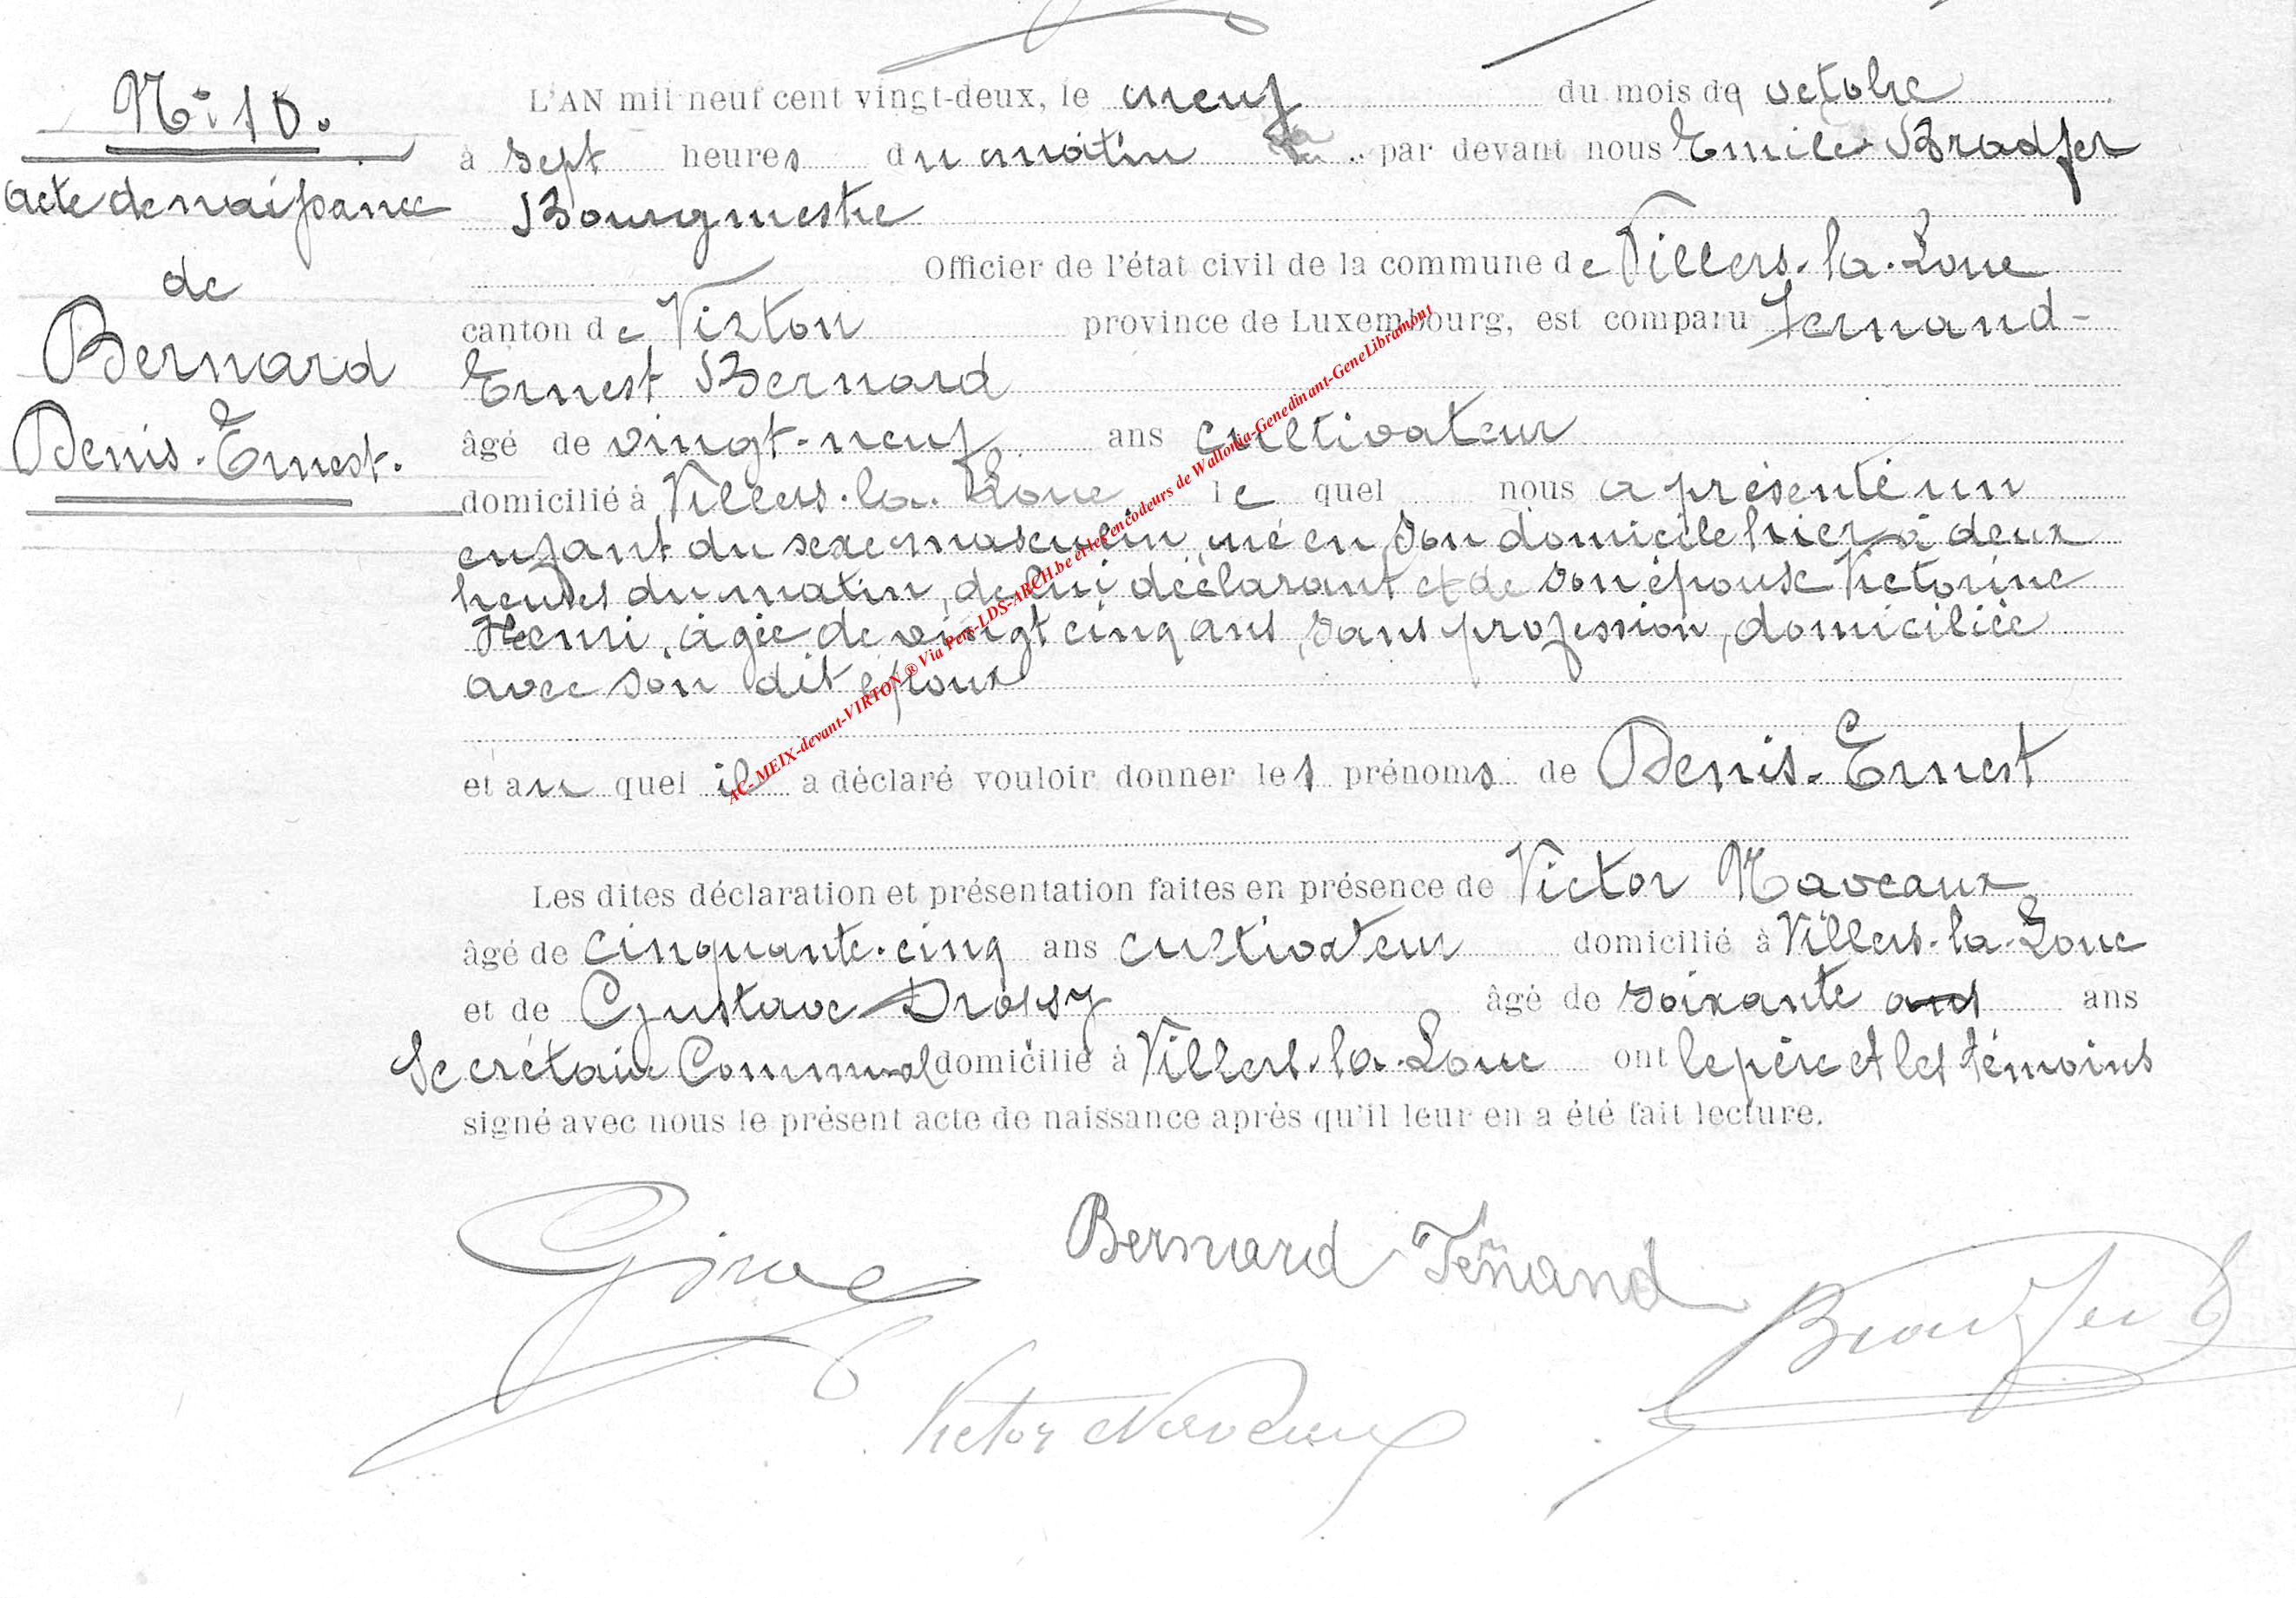 N° 10.
acte de naissance
de
Bernard
Denis-Ernest.
L'AN mil neuf cent vingt-deux, le neuf du mois de octobre
à sept heures du matin par devant nous Emile Bradfer
Bourgmestre
Officier de l'état civil de la commune de Villers-la-Loue
canton de Virton province de Luxembourg, est comparu Fernand-
Ernest Bernard
âgé de vingt-neuf ans cultivateur
domicilié à Villers-la-Loue lequel nous a présenté un
enfant du sexe masculin, né en son domicile hier à deux
heures du matin, de lui déclarant et de son épouse Victorine
Henri, âgée de vingt cinq ans, sans profession, domiciliée
avec son dit époux
et au quel il a déclaré vouloir donner les prénoms de Denis-Ernest
Les dites déclaration et présentation faites en présence de Victor Naveaux
âgé de cinquante-cinq ans cultivateur domicilié à Villers-la-Loue
et de Gustave Drossy âgé de soixante ans ans
Secrétaire Communal domicilié à Villers-la-Loue ont le père et les témoins
signé avec nous le présent acte de naissance après qu'il leur en a été fait lecture.
Bernard Fernand
Bradfer E
Victor Naveaux
AC-MEIX-devant-VIRTON ® Via Pers-LDS-ARCH.be et les encodeurs de Wallonia-Genedinant-GeneLibramont